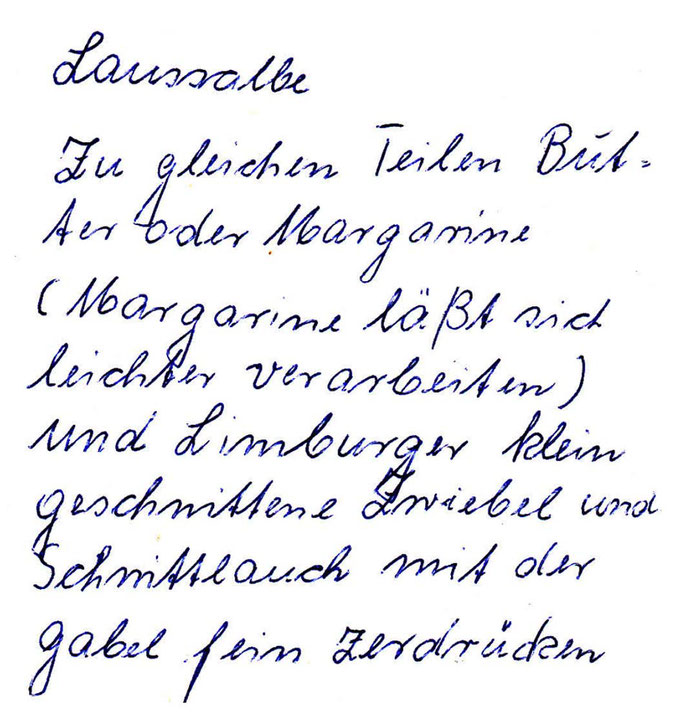 Laussalbe
Zu gleichen Teilen But-
ter oder Margarine
(Margarine läßt sich
leichter verarbeiten)
und Limburger klein
geschnittene Zwiebel und
Schnittlauch mit der
gabel fein zerdrücken